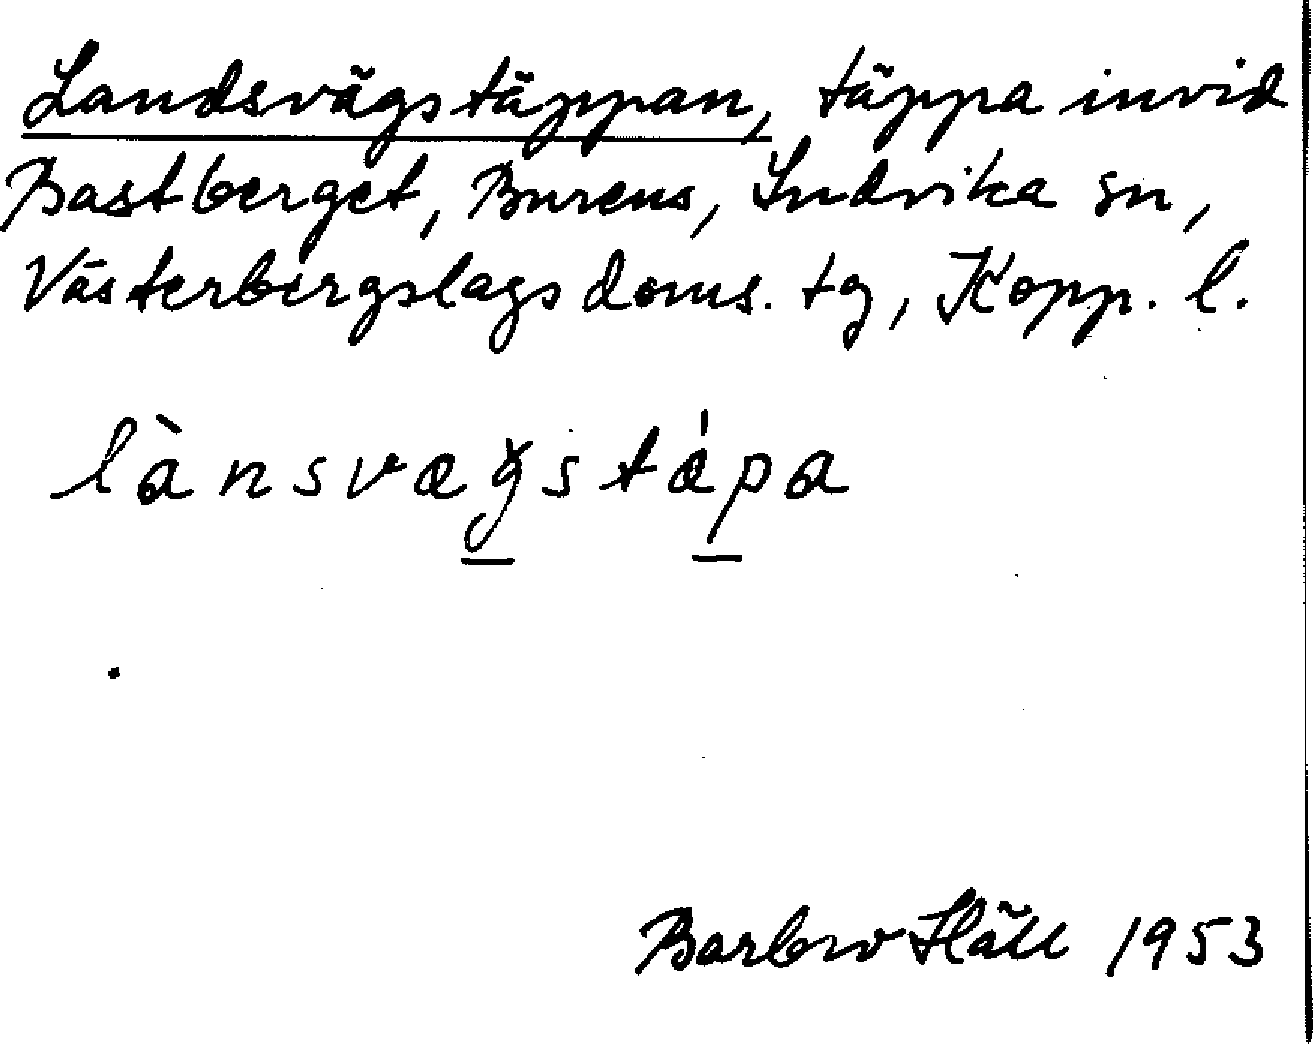 Landsvägstäppan, täppa invid
Bastberget, Burens, Ludvika sn,
Västerbergslags doms. tg, Kopp. l.
lànsvægstǽpa
1953